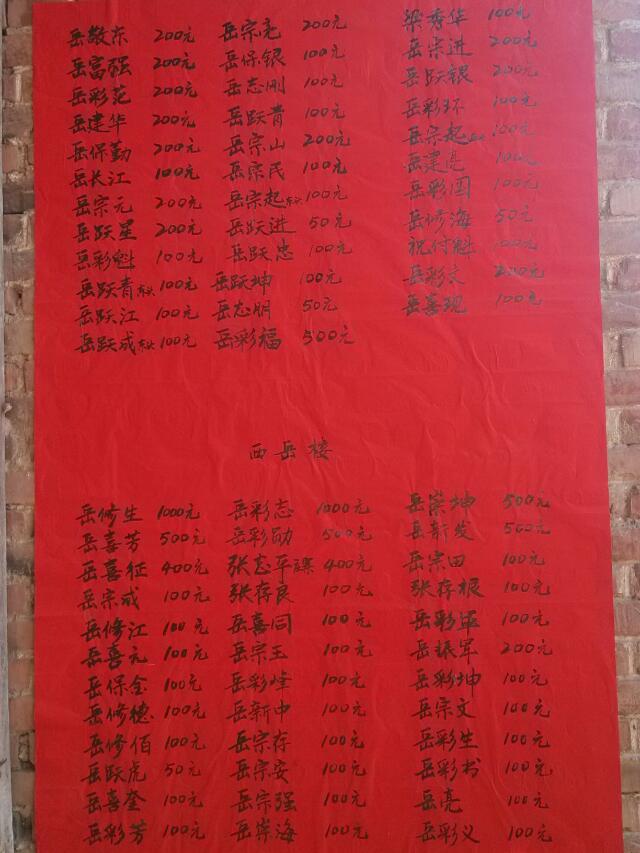 岳敬东 200元 岳宗尧 200元 梁秀华 100元
岳富强 200元 岳保银 100元 岳宗进 200元
岳彩范 200元 岳志刚 100元 岳跃银 200元
岳建华 200元 岳跃青 100元 岳彩环 100元
岳保勤 200元 岳宗山 200元 岳宗起 100元
岳长江 100元 岳宗民 100元 岳建亮 100元
岳宗元 200元 岳宗起东头 100元 岳彩国 100元
岳跃星 200元 岳跃进 50元 岳修海 50元
岳彩魁 100元 岳跃忠 100元 祝付魁 100元
岳跃青东头 100元 岳跃坤 100元 岳彩文 200元
岳跃江 100元 岳志明 50元 岳喜现 100元
岳跃成东头 100元 岳彩福 500元
西岳楼
岳修生 1000元 岳彩志 1000元 岳崇坤 500元
岳喜芳 500元 岳彩勋 500元 岳新发 500元
岳喜征 400元 张志平 400元 岳宗田 100元
岳宗成 100元 张存良 100元 张存根 100元
岳修江 100元 岳喜同 100元 岳彩军 100元
岳喜元 100元 岳宗玉 100元 岳振军 200元
岳保全 100元 岳彩峰 100元 岳彩坤 100元
岳修德 100元 岳新中 100元 岳宗文 100元
岳修佰 100元 岳宗存 100元 岳彩生 100元
岳跃虎 50元 岳宗安 100元 岳彩书 100元
岳喜奎 100元 岳宗强 100元 岳亮 100元
岳彩芳 100元 岳崇海 100元 岳彩义 100元